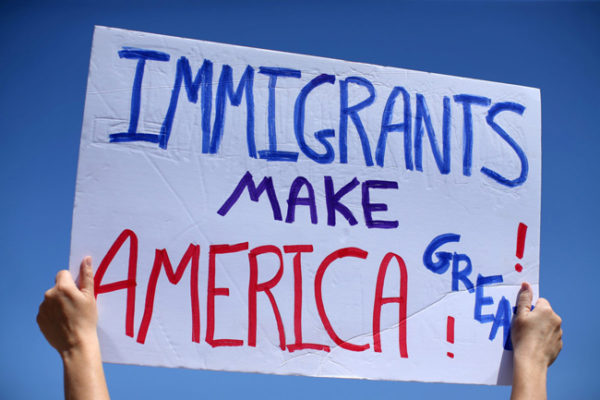 IMMIGRANTS
MAKE
AMERICA
GREAT !!